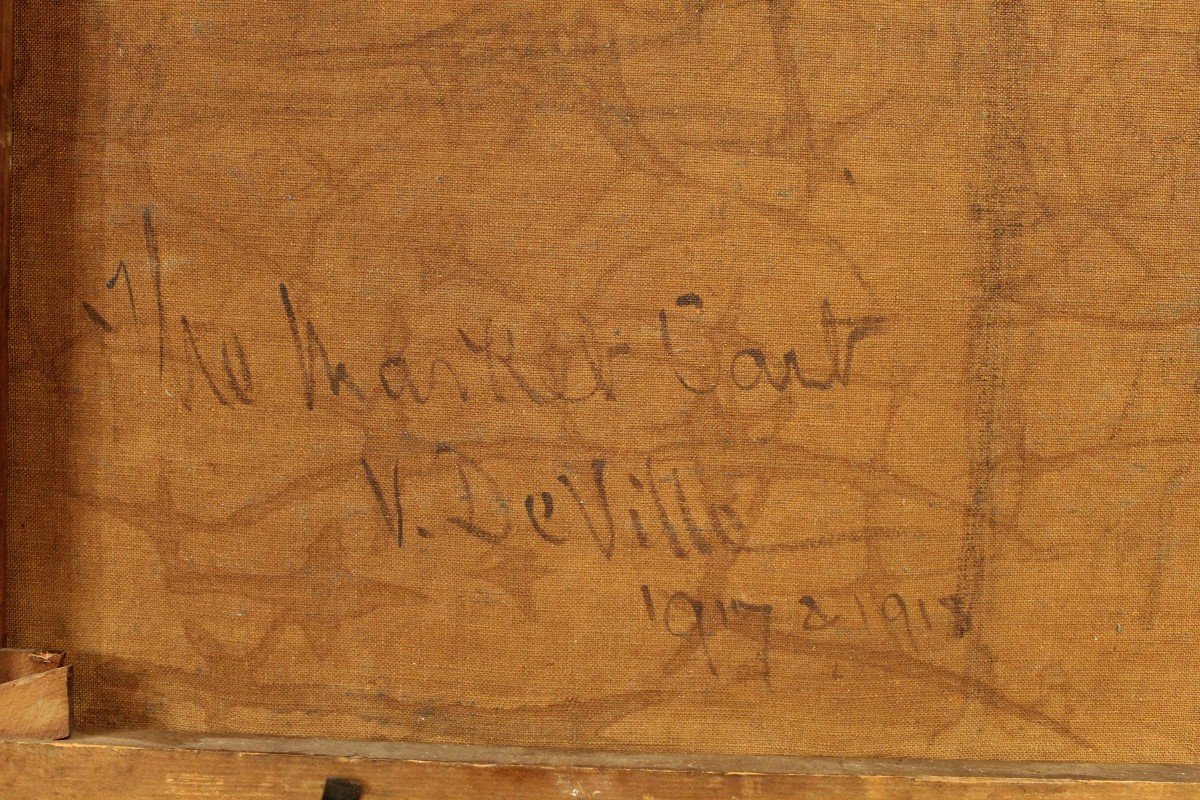 The Market Cart
V. DeVille
1917 & 1918